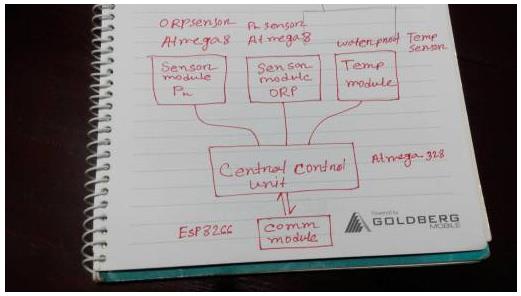 ORPsensor
Atmega8
PH sensor
Atmega8
waterproof Temp
sensor
Sensor
module
PH
Sensor
module
ORP
Temp
module
Central control
unit
Atmega 328
ESP8266
comm
module
Powered by
GOLDBERG
MOBILE